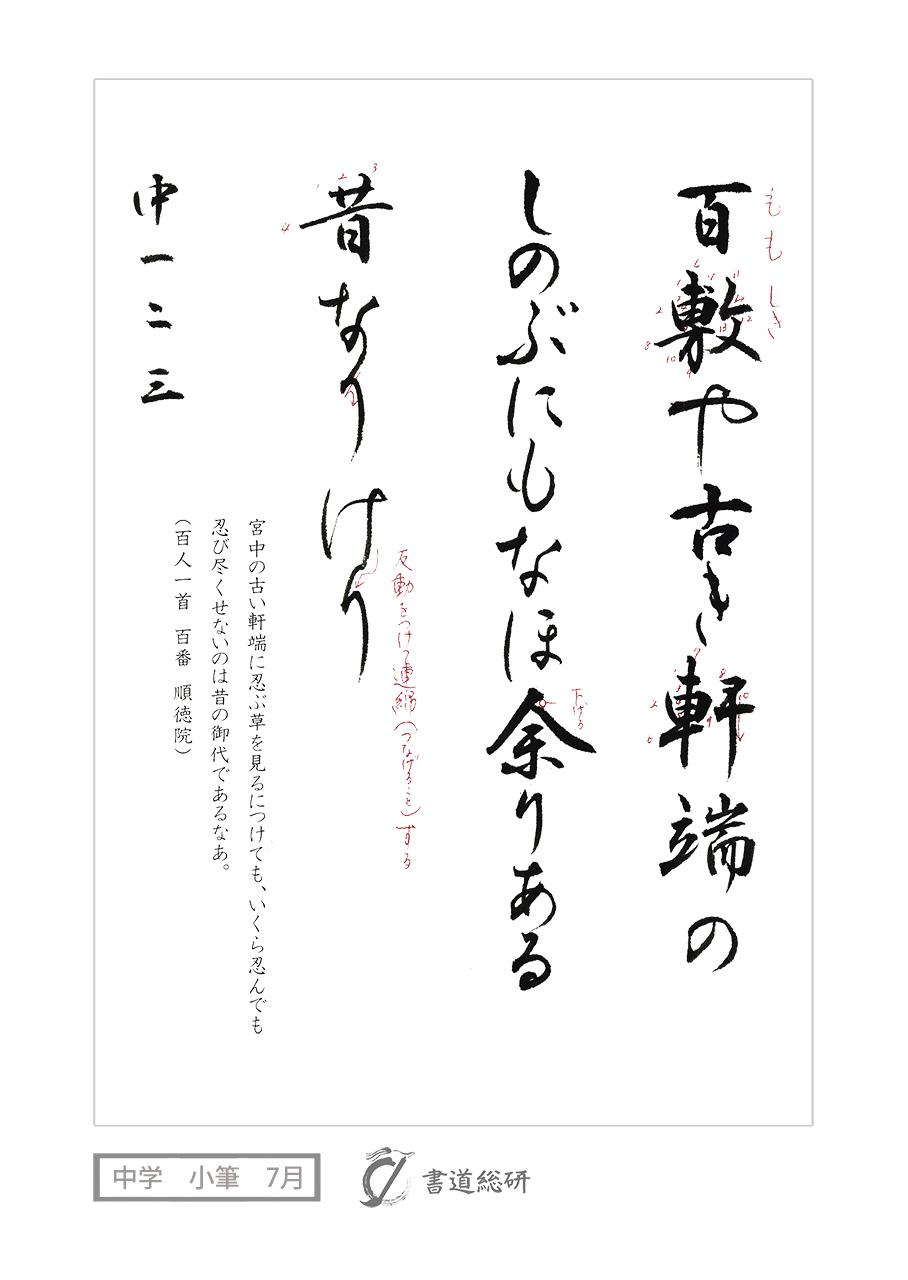 百敷や古き軒端の
ももしき
しのぶにもなほ余りある
下げる
昔なりけり
反動をつけて連綿(つなげること)する
中一二三
宮中の古い軒端に忍ぶ草を見るにつけても、いくら忍んでも
忍び尽くせないのは昔の御代であるなあ。
(百人一首 百番 順徳院)
中学 小筆 7月
書道総研